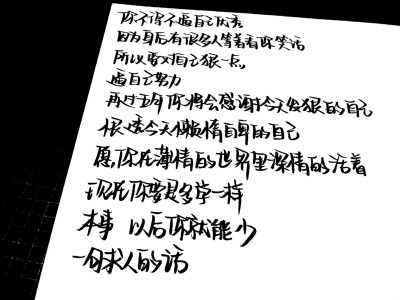 你不得不逼自己优秀
因为身后有很多人等着看你笑话
所以要对自己狠一点
逼自己努力
再过五年你将会感谢今天发狠的自己
恨透今天懒惰自卑的自己
愿你在薄情的世界里深情的活着
现在你要是多学一样
本事 以后你就能少
一句求人的话